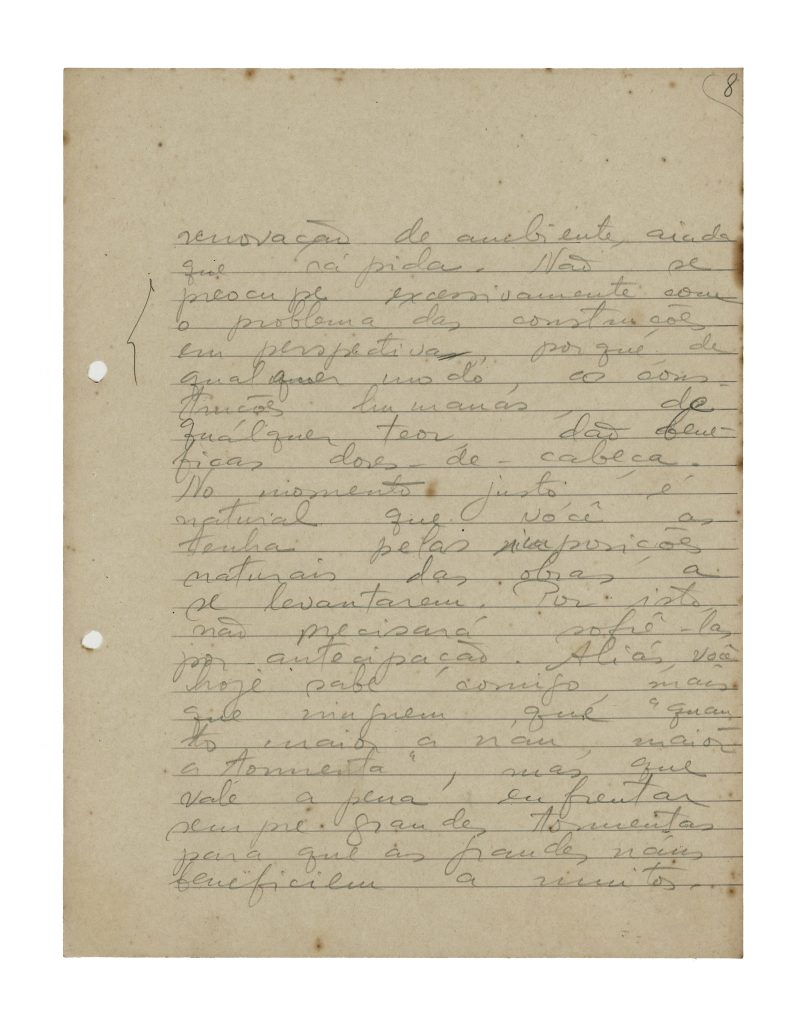 8
renovação de ambiente, ainda
que rápida. Não se
preocupe excessivamente com
o problema das construções
em perspectiva, porquê de
qualquer modo, as cons-
truções humanas, de
qualquer teor, dão bené-
ficas dores-de-cabeça.
No momento justo é
natural que você as
tenha pelas imposições
naturais das obras a
se levantarem. Por isto,
não precisará sofrê-las
por antecipação. Aliás, você
hoje sabe comigo mais
que ninguem que "quan
to maior a nau, maior
a tormenta", mas que
vale a pena enfrentar
sempre grandes tormentas
para que as grandes náus
beneficiem a muitos.